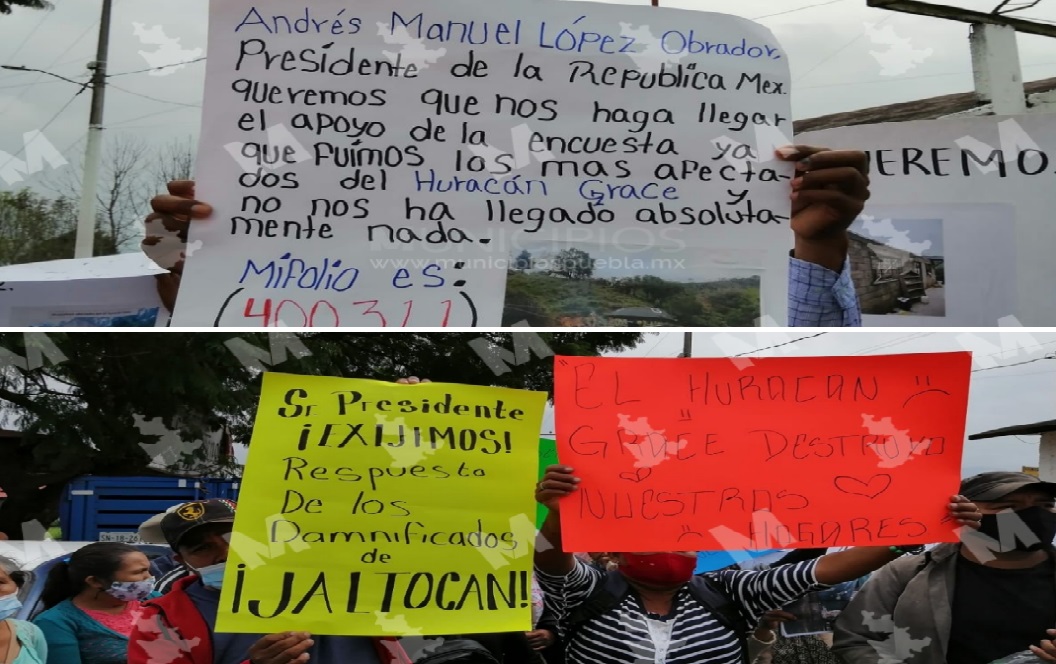 Andrés Manuel López Obrador,
Presidente de la Republica Mex.
queremos que nos haga llegar
el apoyo de la encuesta ya
que fuimos los mas afecta-
dos del Huracán Grace y
no nos ha llegado absoluta-
mente nada.
Mi folio es:
(400311)
UEREMO
MUNICIPIOS
www.municipiospuebla.mx
Sr Presidente
¡EXIJIMOS!
Respuesta
De los
Damnificados
de
¡JALTOCAN!
"EL HURACAN
GRACE DESTROYO
NUESTROS
HOGARES"